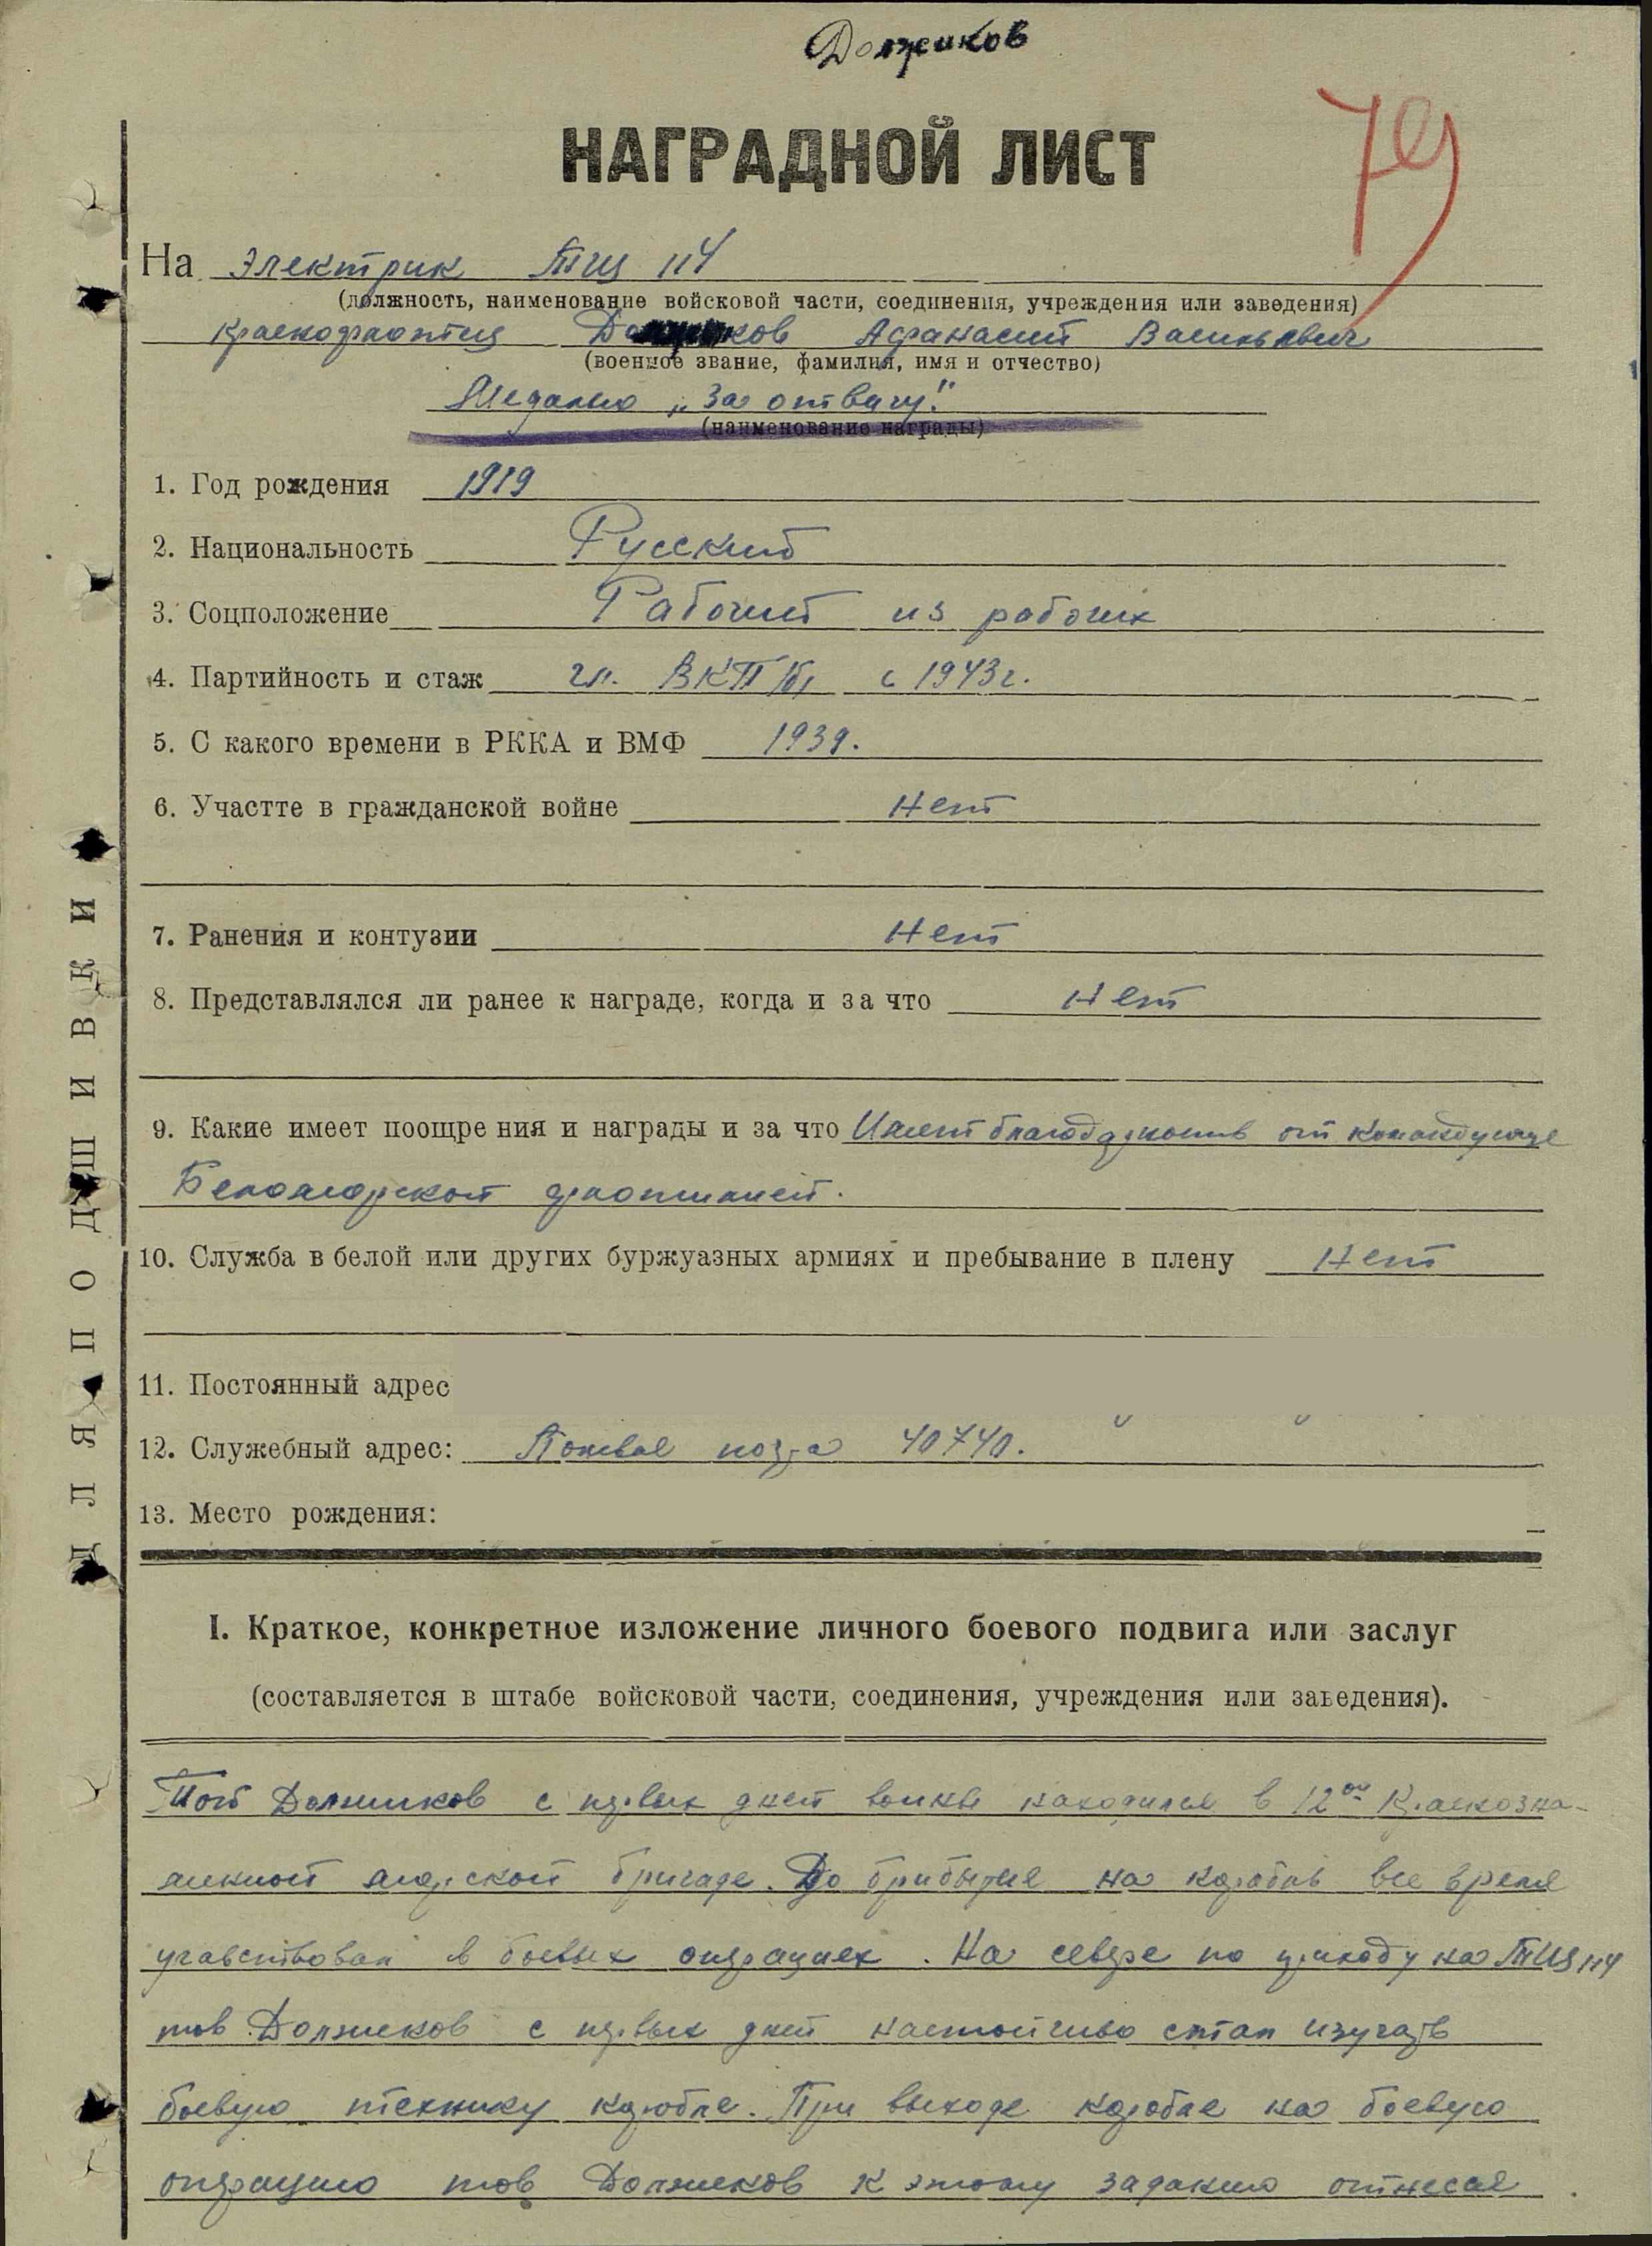 Должиков
НАГРАДНОЙ ЛИСТ
79
На электрик ТЩ 114
(должность, наименование войсковой части, соединения, учреждения или заведения)
Краснофлотец Должиков Афанасий Васильевич
(военное звание, фамилия, имя и отчество)
Медалью „За отвагу"
(наименование награды)
1. Год рождения 1919
2. Национальность Русский
3. Соцположение Рабочий из рабочих
4. Партийность и стаж чл. ВКП/б/ с 1943г.
5. С какого времени в РККА и ВМФ 1939.
6. Участте в гражданской войне Нет
7. Ранения и контузии Нет
8. Представлялся ли ранее к награде, когда и за что Нет
9. Какие имеет поощрения и награды и за что Имеет благодарность от командующе
Беломорской флотилией.
10. Служба в белой или других буржуазных армиях и пребывание в плену Нет
11. Постоянный адрес
12. Служебный адрес: Полевая почта 40740.
13. Место рождения:
ДЛЯ ПОДШИВКИ
I. Краткое, конкретное изложение личного боевого подвига или заслуг
(составляется в штабе войсковой части, соединения, учреждения или заведения).
Тов Должиков с первых дней войны находился в 12ой Краснозна-
менной морской бригаде. До прибытия на корабль все время
учавствовал в боевых операциях. На севере по приходу на ТЩ 114
тов Должиков с первых дней настойчиво стал изучать
боевую технику корабля. При выходе корабля на боевую
операцию тов Должиков к этому заданию отнесся